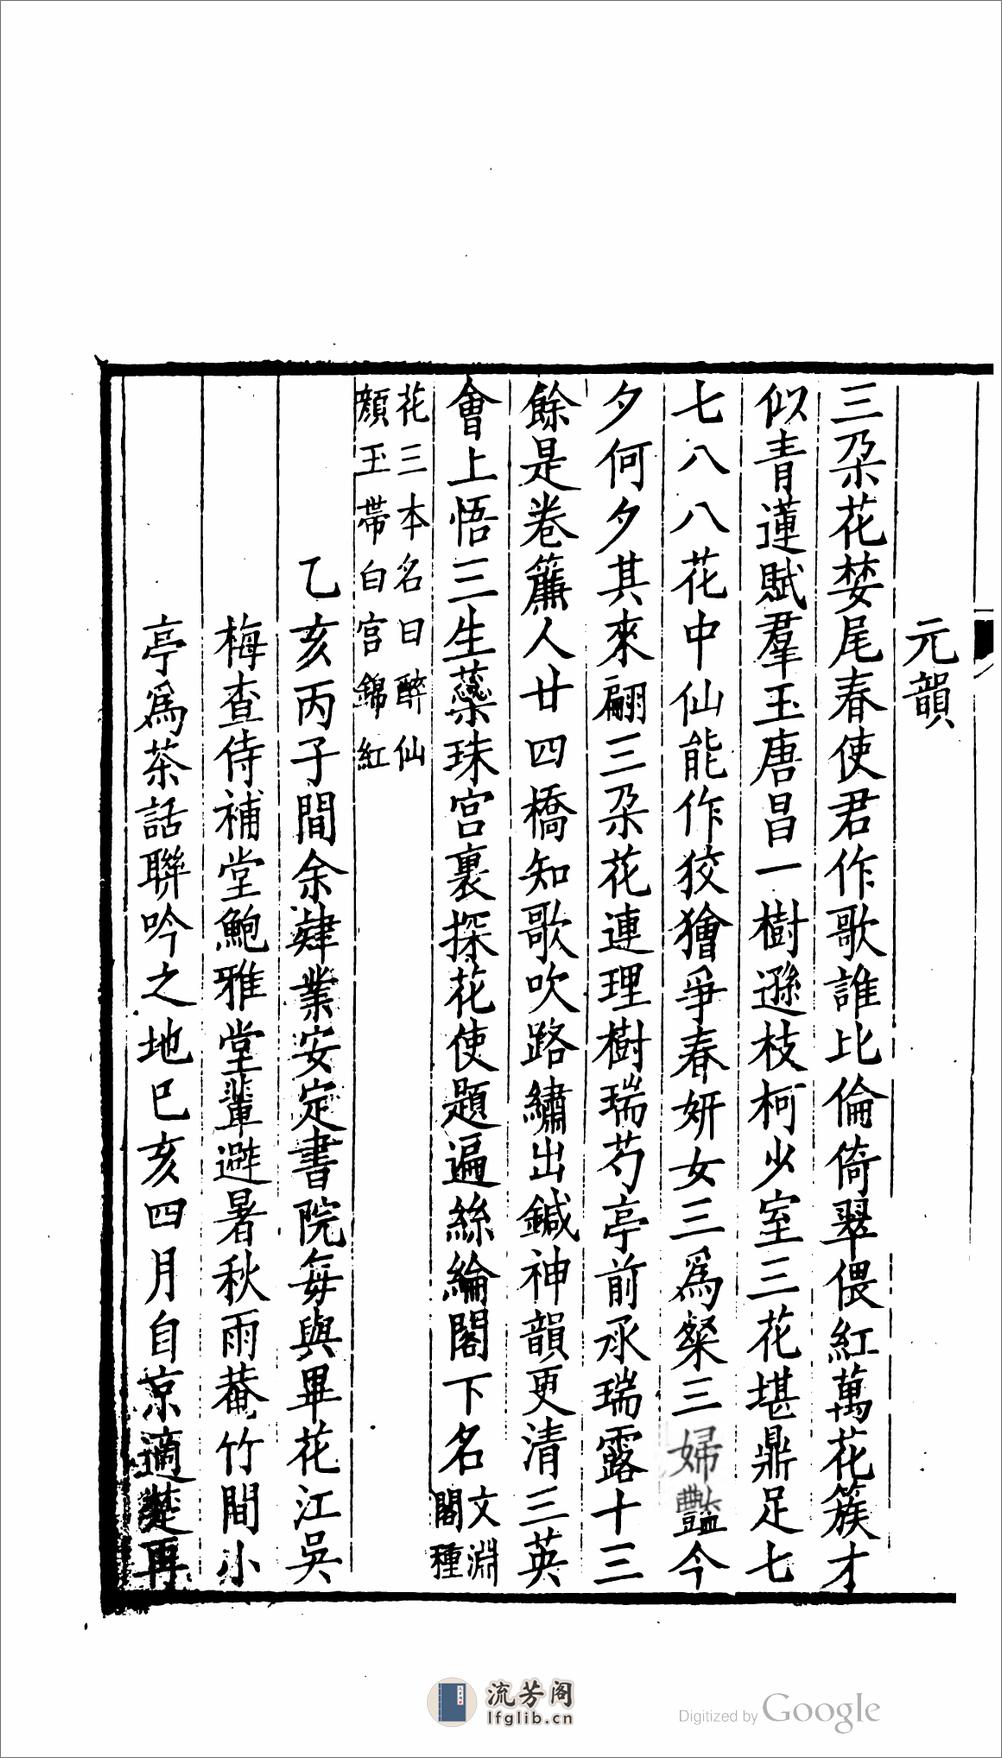 元韻
三朶花婪尾春使君作歌誰比倫倚翠偎紅萬花簇才
似青蓮賦羣玉唐昌一樹遜枝柯少室三花堪鼎足七
七八八花中仙能作狡獪爭春妍女三爲粲三婦豔今
夕何夕其來翩三朶花連理樹瑞芍亭前承瑞露十三
餘是卷簾人廿四橋知歌吹路繡出鍼神韻更清三英
會上悟三生蘂珠宮裏探花使題遍絲綸閣下名文淵
閣種
花三本名曰醉仙
顏玉帶白宮錦紅
乙亥丙子間余肄業安定書院每與畢花江吳
梅查侍補堂鮑雅堂輩避暑秋雨菴竹間小
亭爲茶話聯吟之地已亥四月自京適楚再
流芳阁
lfglib.cn
Digitized by Google